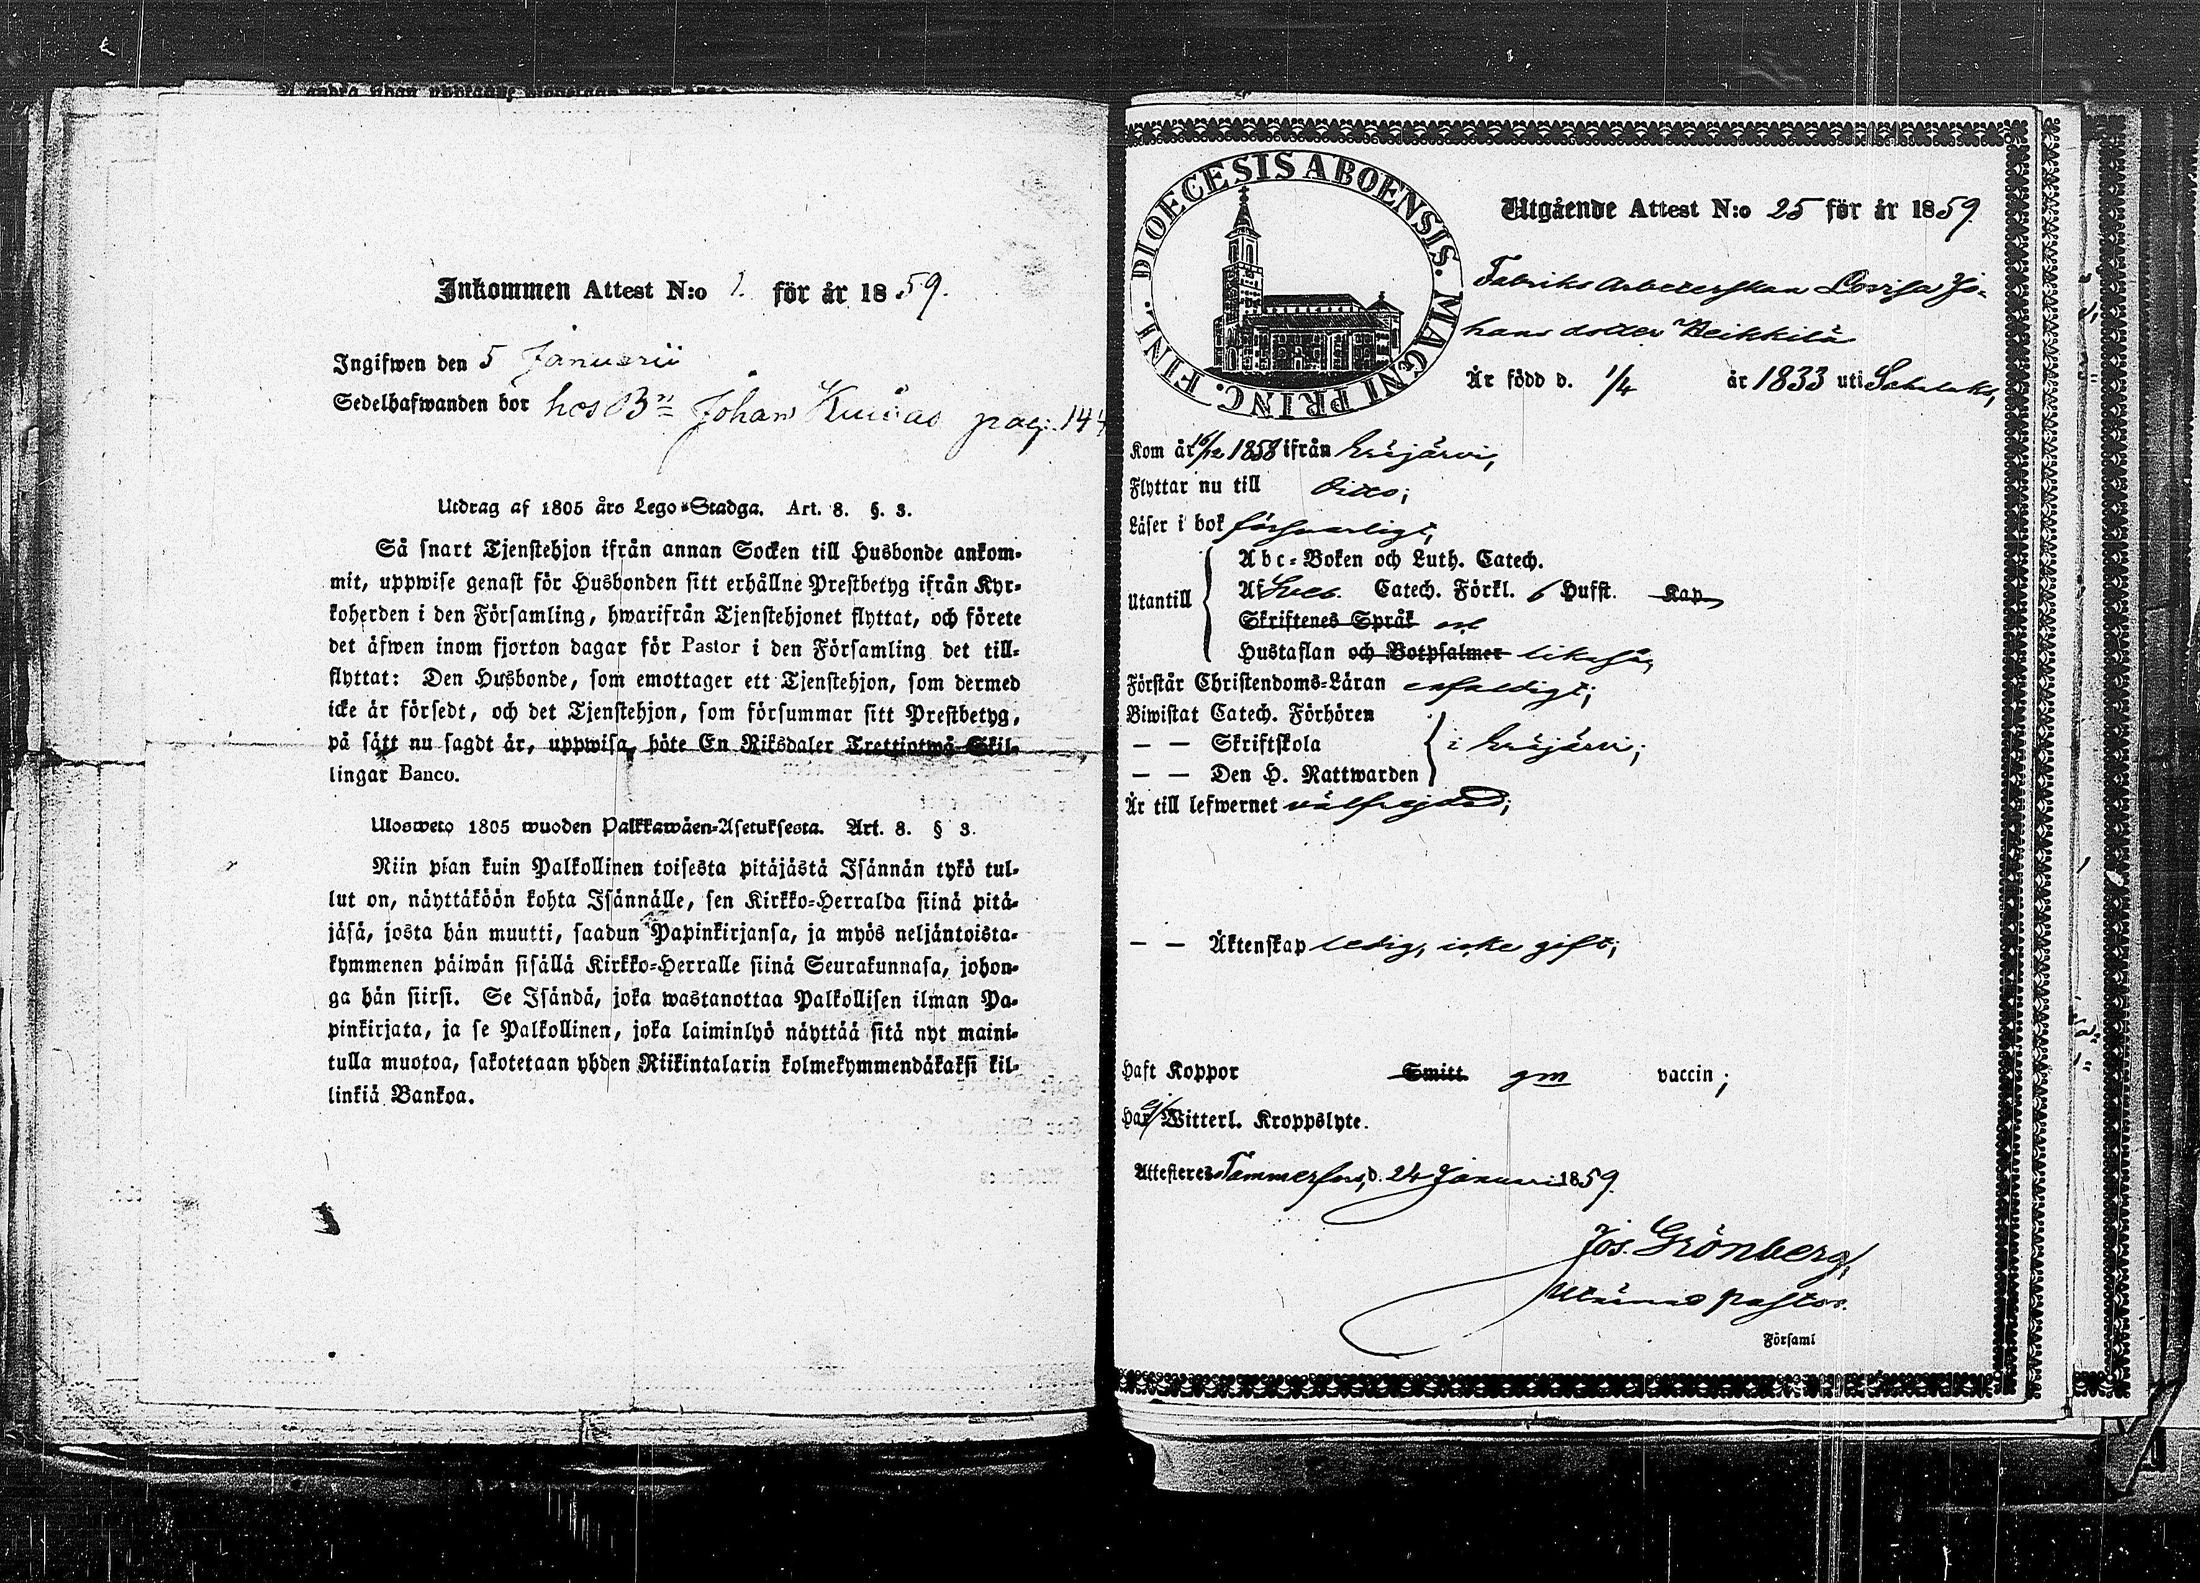 Inkommen Attest N:o 1. för år 1859.
Ingifwen den 5 Januarii
Sedelhafwanden bor hos Bn Johan pag: 144
Utdrag af 1805 års Lego-Stadga. Art. 8. §. 3.
Så snart Tjenstehjon ifrån annan Socken till Husbonde ankom-
mit, uppwise genast för Husbonden sitt erhållne Prestbetyg ifrån Kyr-
koherden i den Församling, hwarifrån Tjenstehjonet flyttat, och förete
det äfwen inom fjorton dagar för Pastor i den Församling det till-
flyttat: Den Husbonde, som emottager ett Tjenstehjon, som dermed
icke är försedt, och det Tjenstehjon, som försummar sitt Prestbetyg,
på sätt nu sagdt är, uppwisa, böte En Riksdaler Trettiotwå Skil-
lingar Banco.
Ulosweto 1805 wuoden Palkkawäen-Asetuksesta. Art. 8. § 3.
Niin pian kuin Palkollinen toisesta pitäjästä Isännän tykö tul-
lut on, näyttäköön kohta Isännälle, sen Kirkko-Herralda siinä pitä-
jäsä, josta hän muutti, saadun Papinkirjansa, ja myös neljäntoista-
kymmenen päiwän sisällä Kirkko-Herralle siinä Seurakunnasa, johon-
ga hän siirsi. Se Isändä, joka wastanottaa Palkollisen ilman Pa-
pinkirjata, ja se Palkollinen, joka laiminlyö näyttää sitä nyt maini-
tulla muotoa, sakotetaan yhden Riikintalarin kolmekymmendäkaksi kil-
linkiä Bankoa.
DIOECESIS ABOENSIS. MAGNI PRINC. FINL.
Utgående Attest N:o 25 för år 1859
Fabriks Arbeterskan Lovisa Jo-
hans dotter Heikkilä
Är född d. 1/4 år 1833 uti Sahalaks,
Kom år 16/12 1858 ifrån Eräjärvi,
Flyttar nu till Ditto;
Läser i bok försvarligt;
Utantill
Abc-Boken och Luth. Catech.
Af Sveb. Catech. Förkl. 6 Hufst. Kap
Skriftenes Språk
Hustaflan och Botpsalmer likaså,
Förstår Christendoms-Läran enfaldigt;
Biwistat Catech. Förhören
— — Skriftskola i Eräjärvi;
— — Den H. Nattwarden
Är till lefwernet välfrejdad;
— — Äktenskap ledig, icke gift;
Haft Koppor Smitt. gm vaccin;
Har ej Witterl. Kroppslyte.
Attesteres Tammerfors, d. 24 Januari 1859.
Jos. Grönberg,
Pastor.
Församl